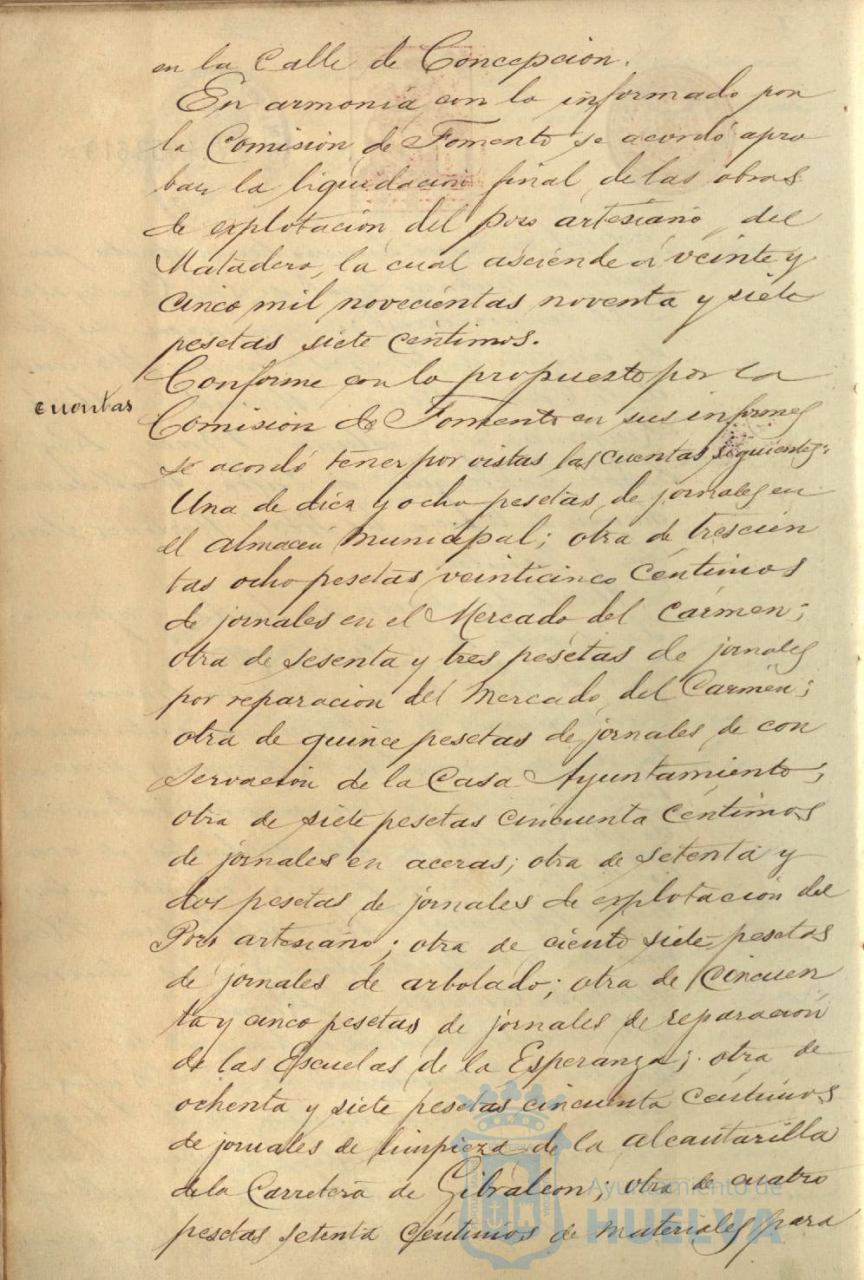 en la Calle de Concepción.
En armonía con lo informado por
la Comisión de Fomento se acordó apro
bar la liquidación final de las obras
de explotación del pozo artesiano del
Matadero, la cual asciende á veinte y
cinco mil novecientas noventa y siete
pesetas siete céntimos.
Conforme con lo propuesto por la
cuentas
Comisión de Fomento en sus informes
se acordó tener por vistas las cuentas siguientes:
Una de diez y ocho pesetas de jornales en
el almacén Municipal; otra de trescien
tas ocho pesetas veinticinco céntimos
de jornales en el Mercado del Carmen;
otra de sesenta y tres pesetas de jornales
por reparación del Mercado del Carmen;
otra de quince pesetas de jornales de con
servación de la Casa Ayuntamiento;
otra de siete pesetas cincuenta céntimos
de jornales en aceras; otra de setenta y
dos pesetas de jornales de explotación del
Pozo artesiano; otra de ciento siete pesetas
de jornales de arbolado; otra de cincuen
ta y cinco pesetas de jornales de reparación
de las Escuelas de la Esperanza; otra de
ochenta y siete pesetas cincuenta céntimos
de jornales de limpieza de la alcantarilla
de la Carretera de Gibraleon; otra de cuatro
pesetas setenta céntimos de materiales para
Ayuntamiento de
HUELVA